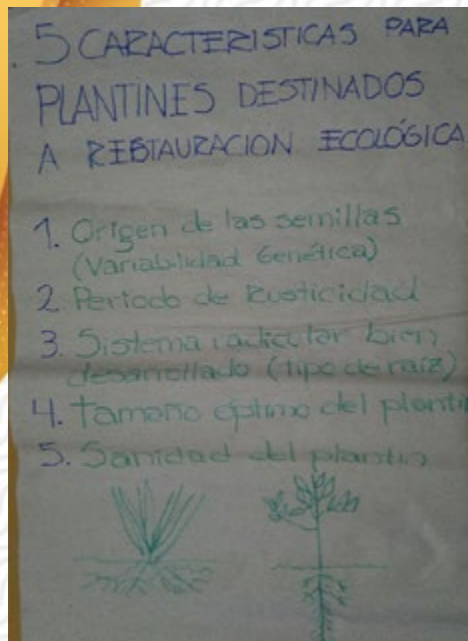 . 5 CARACTERISTICAS PARA
PLANTINES DESTINADOS
A RESTAURACION ECOLÓGICA
1. Origen de las semillas
(Variabilidad Genética)
2 Periodo de Rusticidad
3. Sistema radicular bien
desarrollado (tipo de raiz)
4. Tamaño óptimo del plantin
5. Sanidad del plantin